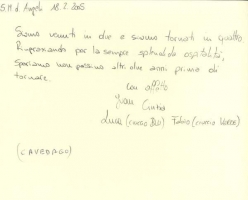 S.M. d. Angeli 18.2.2005
Siamo venuti in due e siamo tornati in quattro
Ringraziando per la sempre splendida ospitalità,
speriamo non passino altri due anni prima di
tornare.
con affetto
Ivan Cinzia
Luca (ciuccio Blu) Fabio (ciuccio Verde)
(CAVEDAGO)